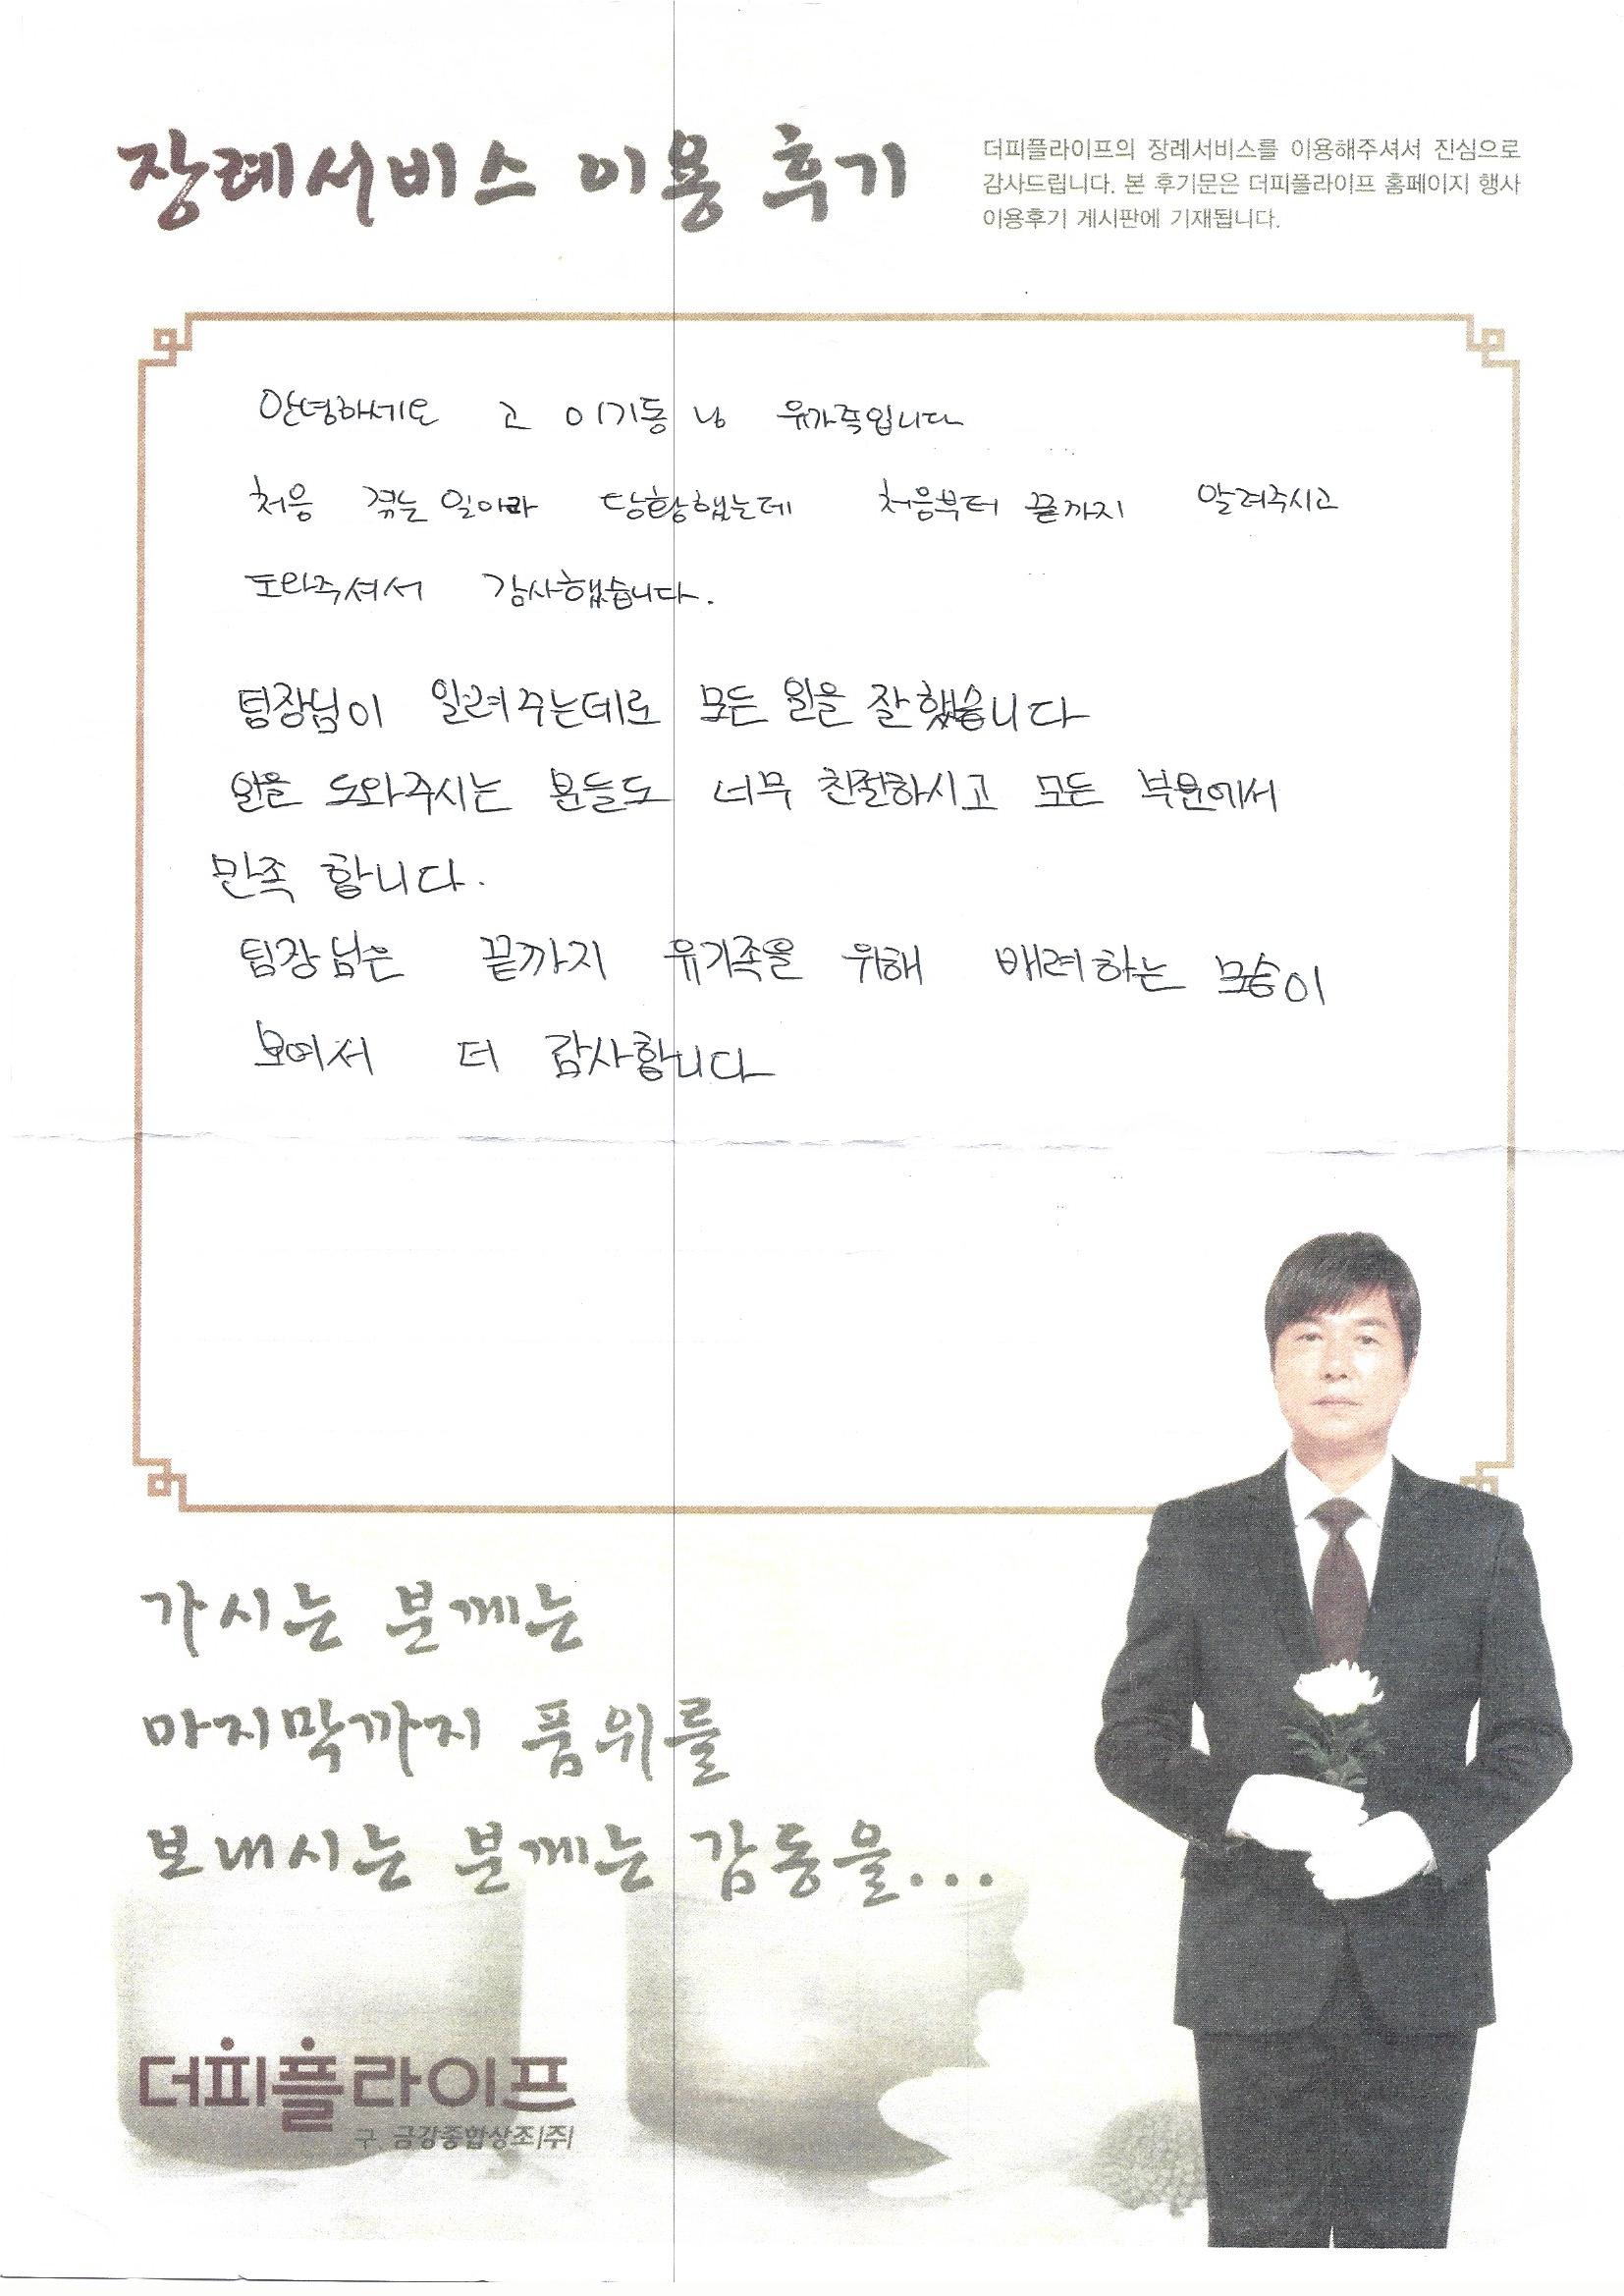 장례서비스 이용 후기
더피플라이프의 장례서비스를 이용해주셔서 진심으로
감사드립니다. 본 후기문은 더피플라이프 홈페이지 행사
이용후기 게시판에 기재됩니다.
안녕하세요 고 이기동 님 유가족입니다
처음 겪는 일이라 당황했는데 처음부터 끝까지 알려주시고
도와주셔서 감사했습니다.
팀장님이 알려주는데로 모든 일을 잘했습니다
일을 도와주시는 분들도 너무 친절하시고 모든 부분에서
만족 합니다.
팀장님은 끝까지 유가족을 위해 배려하는 모습이
보여서 더 감사합니다
가시는 분께는
마지막까지 품위를
보내시는 분께는 감동을...
더피플라이프
구. 금강종합상조(주)